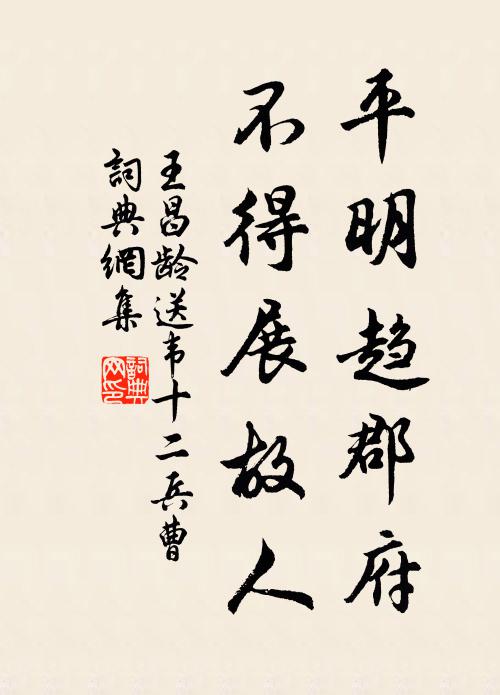 平明趋郡府
不得展故人
王昌龄送韦十二兵曹
詞典網集
詞典網印